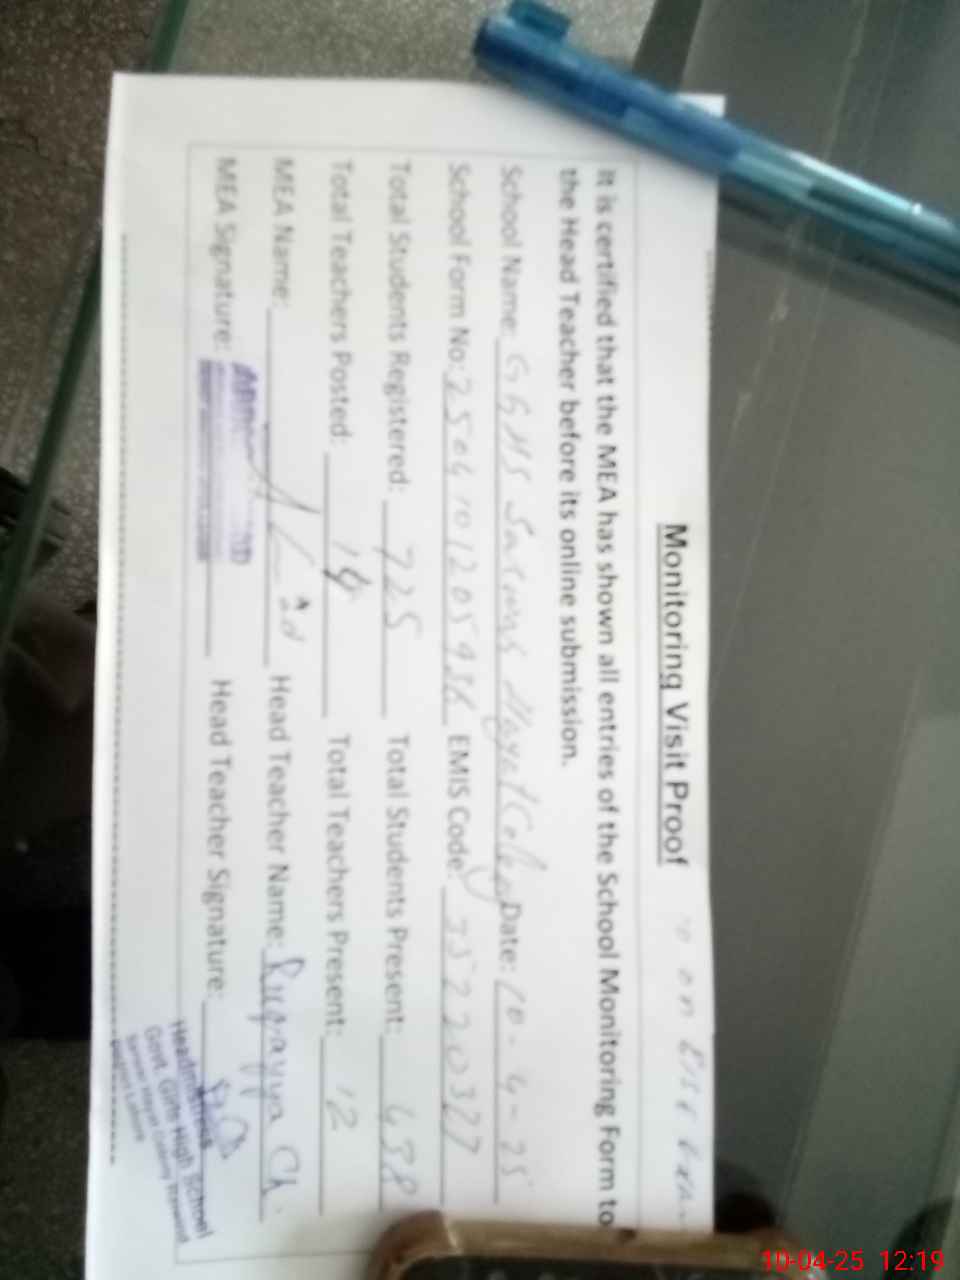 Monitoring Visit Proof
It is certified that the MEA has shown all entries of the School Monitoring Form to
the Head Teacher before its online submission.
School Name: GGHS Date: 10-4-25
School Form No: EMIS Code: 35220327
Total Students Registered: 725 Total Students Present: 638
Total Teachers Posted: Total Teachers Present: 12
MEA Name: Head Teacher Name: Ruqayya Ch.
MEA Signature: Head Teacher Signature:
Headmistress
Govt. Girls High School
10-04-25 12:19